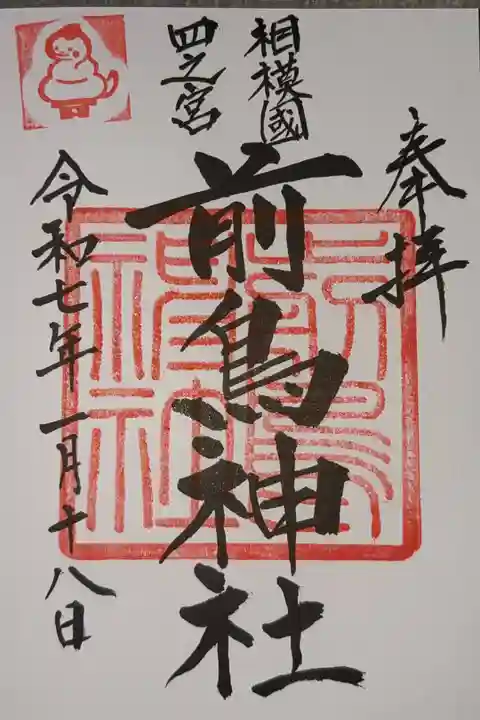 奉拝
相模國
四之宮
前鳥神社
令和七年一月十八日